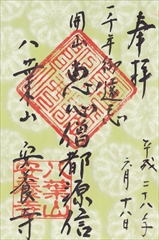 奉拝
平成二十八年
六月十八日
一千年御遠忌
開山
恵心僧都源信
八葉山
安養寺
八葉山
安養寺